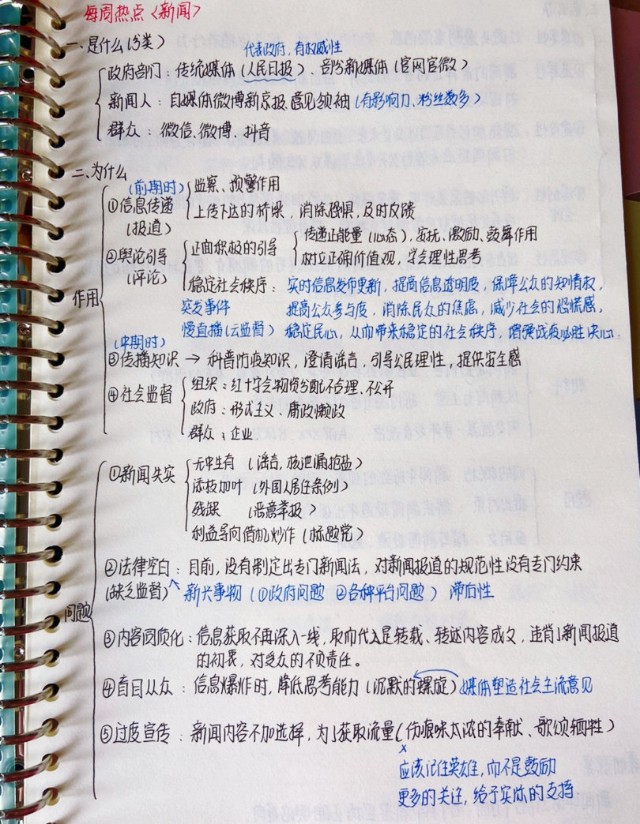 每周热点《新闻》
一、是什么(3类)
代表政府,有权威性
政府部门:传统媒体(人民日报)、部分新媒体(官网官微)
新闻人:自媒体微博新京报、意见领袖(有影响力、粉丝数多)
群众:微信、微博、抖音
二、为什么
作用
(前期时)
①信息传递
(报道)
监察、预警作用
上传下达的桥梁,消除恐惧,及时反馈
②舆论引导
(评论)
正面积极的引导
传递正能量(心态),安抚、激励、鼓舞作用
树立正确价值观,学会理性思考
稳定社会秩序:实时信息发布更新,提高信息透明度,保障公众的知情权,
突发事件 提高公众参与度,消除民众的焦虑,减少社会的恐慌感,
慢直播(云监督) 稳定民心,从而带来稳定的社会秩序,增强战疫必胜决心。
(中期时)
③传播知识→科普防疫知识,澄清谣言,引导公民理性,提供安全感
④社会监督
组织:红十字会物资分配不合理、不公开
政府:形式主义、庸政懒政
群众、企业
问题
①新闻失实
无中生有(谣言,核泄漏抢盐)
添枝加叶(外国人居住条例)
残误(恶意举报)
利益导向借机炒作(标题党)
②法律空白:目前,没有制定出专门新闻法,对新闻报道的规范性没有专门约束
(缺乏监督) 新兴事物(①政府问题 ②各种平台问题)滞后性
③内容同质化:信息获取不再深入一线,取而代之是转载、转述内容成文,违背了新闻报道
的初衷,对受众的不负责任。
④盲目从众:信息爆炸时,降低思考能力(沉默的螺旋)媒体塑造社会主流意见
⑤过度宣传:新闻内容不加选择,为了获取流量(伤痕味太浓的奉献、歌颂牺牲)
×
应该记住英雄,而不是鼓励
更多的关注,给予实际的支持